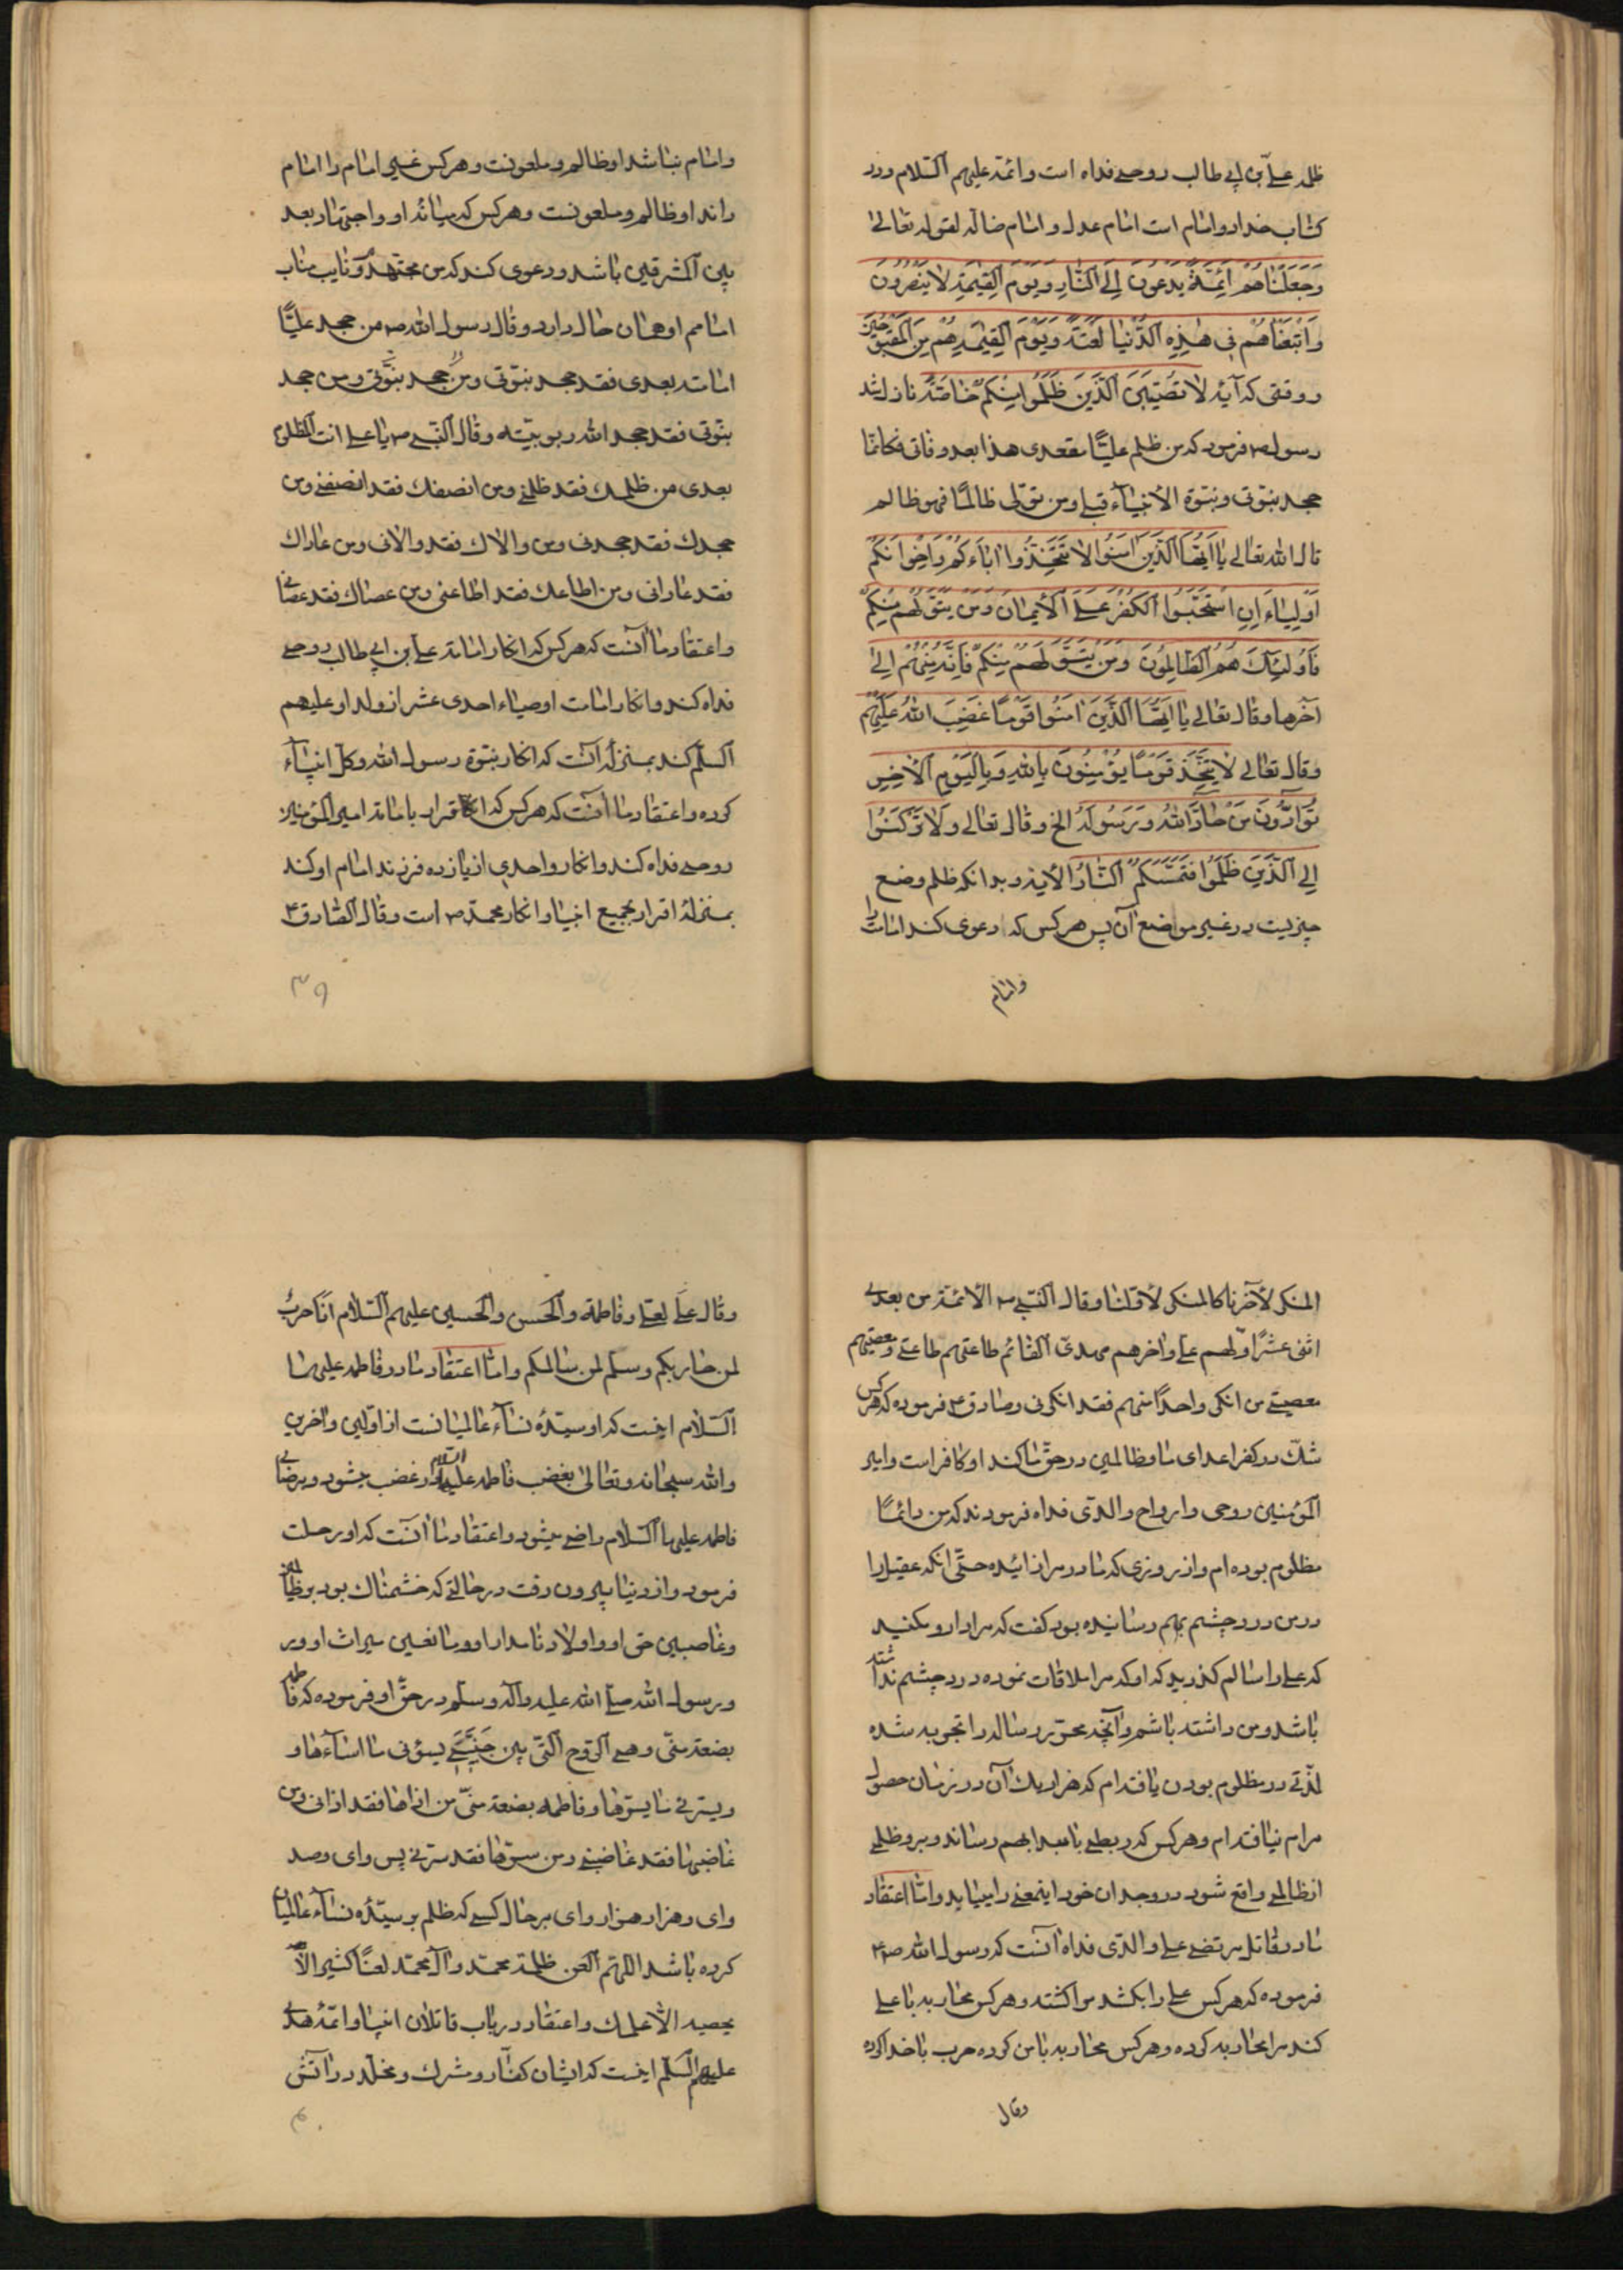 ظلمه علیّ بن ابی طالب روحی فداه است و ائمّه علیهم السّلام و در
کتاب خدا دو امام است امام عدل و امام ضاله لقوله تعالی
وَجَعَلْنَاهُمْ اَئِمَّةً یَدْعُونَ اِلَی النَّارِ وَ یَوْمَ القِیٰمَةِ لَا یُنْصَرُونَ
وَاَتْبَعْنَاهُمْ فِی هٰذِهِ الدُّنْیَا لَعْنَةً وَ یَوْمَ القِیٰمَةِ هُمْ مِنَ المَقْبُوحِینَ
و وقتی که آیهٔ لا تُصِیبَنَّ الَّذِینَ ظَلَمُوا مِنْکُمْ خَاصَّةً نازل شد
رسول ص فرمود که من ظلم علیًّا مقعدی هذا بعد وفاتی فکانّما
جحد نبوّتی و نبوّة الأنبیآء قبلی و من تولّی ظالمًا فهو ظالم
قال الله تعالی یَا اَیُّهَا الَّذِینَ اٰمَنُوا لَا تَتَّخِذُوا اٰبَاءَکُمْ وَاِخْوَانَکُمْ
اَوْلِیَاءَ اِنِ اسْتَحَبُّوا الکُفْرَ عَلَی الأیمَانِ وَمَنْ یَتَوَلَّهُمْ مِنْکُمْ
فَاُولٰئِکَ هُمُ الظَّالِمُونَ وَمَنْ یَتَوَلَّهُمْ مِنْکُمْ فَاِنَّهُ مِنْهُمْ اِلی
آخرها و قال تعالی یَا اَیُّهَا الَّذِینَ اٰمَنُوا قَوْمًا غَضِبَ اللهُ عَلَیْهِمْ
و قال تعالی لَا یَتَّخِذَ قَوْمًا یُؤْمِنُونَ بِاللهِ وَبِالیَوْمِ الأخِرِ
یُوَادُّونَ مَنْ حَادَّ اللهَ وَرَسُولَهُ الخ و قال تعالی وَلَا تَرْکَنُوا
اِلَی الَّذِینَ ظَلَمُوا فَتَمَسَّکُمُ النَّارُ الأیة و بدانکه ظلم وضع
چیزیست در غیر مواضع آن پس هرکس که دعوی کند امامت را
و امام
و امام نباشد او ظالم و ملعونست و هرکس غیر امام را امام
داند او ظالم و ملعونست و هرکس که میانهٔ او و اجتهاد بعد
بین المشرقین باشد و دعوی کند که من مجتهد و نایب مناب
امامم او همان حال دارد و قال رسول الله ص من جحد علیًّا
امامته بعدی فقد جحد نبوّتی و من جحد نبوّتی و من جحد
نبوّتی فقد جحد الله ربوبیّته و قال النّبی ص یا علی انت المظلوم
بعدی من ظلمک فقد ظلمنی و من انصفک فقد انصفنی و من
جحدک فقد جحدنی و من والاک فقد والانی و من عاداک
فقد عادانی و من اطاعک فقد اطاعنی و من عصاک فقد عصانی
و اعتقاد ما آنست که هرکس که انکار امامة علی بن ابی طالب روحی
فداه کند و انکار امامت اوصیاء احدی عشر از ولد او علیهم
السلّم کند بمنزلهٔ آنست که انکار نبوّة رسول الله و کلّ انبیآء
کرده و اعتقاد ما آنست که هرکس که اقرار بامامة امیر المؤمنین
روحی فداه کند و انکار واحدی از یازده فرزند امام او کند
بمنزلهٔ اقرار بجمیع انبیا و انکار محمّد ص است و قال الصّادق ع
۳۹
المنکر لأخرنا کالمنکر لأوّلنا و قال النّبی ص الأئمّة من بعدی
اثنی عشر اوّلهم علی و اخرهم مهدیّ القائم طاعتهم طاعتی و معصیتهم
معصیتی من انکر واحدًا منهم فقد انکرنی و صادق ع فرموده که هرکس
شکّ در کفر اعدای ما و ظالمین در حقّ ما کند او کافر است و امیر
المؤمنین روحی و ارواح والدیّ فداه فرمودند که من دائمًا
مظلوم بوده‌ام و از روزی که مادر مرا زائیده حتّی انکه عقیل را
درد چشم بهم رسانیده بود گفت که مرا دارو مکنید
که علی را سالم گذرید که او که مرا ملاقات نموده درد چشم نداشته
باشد و من داشته باشم و آنچه محرّر رساله را تجربه شده
لذّتی در مظلوم بودن یافته‌ام که هزار یک آن در زمان حصول
مرام نیافته‌ام و هرکس که ربطی بامبدا بهم رساند و برو ظلمی
از ظالمی واقع شود در وجدان خود اینمعنی را بیابد و امّا اعتقاد
ما در قاتل مرتضی علی والدی فداه آنست که رسول الله ص
فرموده که هرکس علی را بکشد مرا کشته و هرکس محاربه با علی
کند مرا محاربه کرده و هرکس محاربه با من کرده حرب با خدا کرده
وقال
وقال علی لعلی و فاطمة و الحسن و الحسین علیهم السّلام انا حربٌ
لمن حاربکم و سلم لمن سالمکم و امّا اعتقاد ما در فاطمه علیها
السّلام اینست که او سیّدهٔ نسآء عالمیانست از اوّلین و اخرین
و الله سبحانه و تعالی بغضب فاطمه علیها السلام در غضب میشود و برضای
فاطمه علیها السّلام راضی میشود و اعتقاد ما آنست که او رحلت
فرمود و از دنیا بیرون رفت در حالتی که خشمناک بود بر ظالمین
و غاصبین حق او و اولاد نامدار او و مانعین میراث او و پدر
و رسول الله صلی الله علیه و آله و سلم در حقّ او فرموده که فاطمه
بضعة منّی و هی الرّوح الّتی بین جَنْبَیَّ یسؤنی ما اساءها و
و یسرّنی ما یسرّها و فاطمه بضعة منّی من اذاها فقد اذانی و من
غاضبها فقد غاضبنی و من سرّها فقد سرّنی پس وای و صد
وای و هزار هزار وای بر حال کسی که ظلم بر سیّدهٔ نسآء عالمیان
کرده باشد اللهمّ العن ظلمة محمّد و آل محمّد لعنًا کثیرا لا
یحصیه الّا علمک و اعتقاد در باب قاتلان انبیا و ائمّهٔ هدی
علیهم السلّم اینست که ایشان کفّار و مشرک و مخلّد در آتش
۴۰